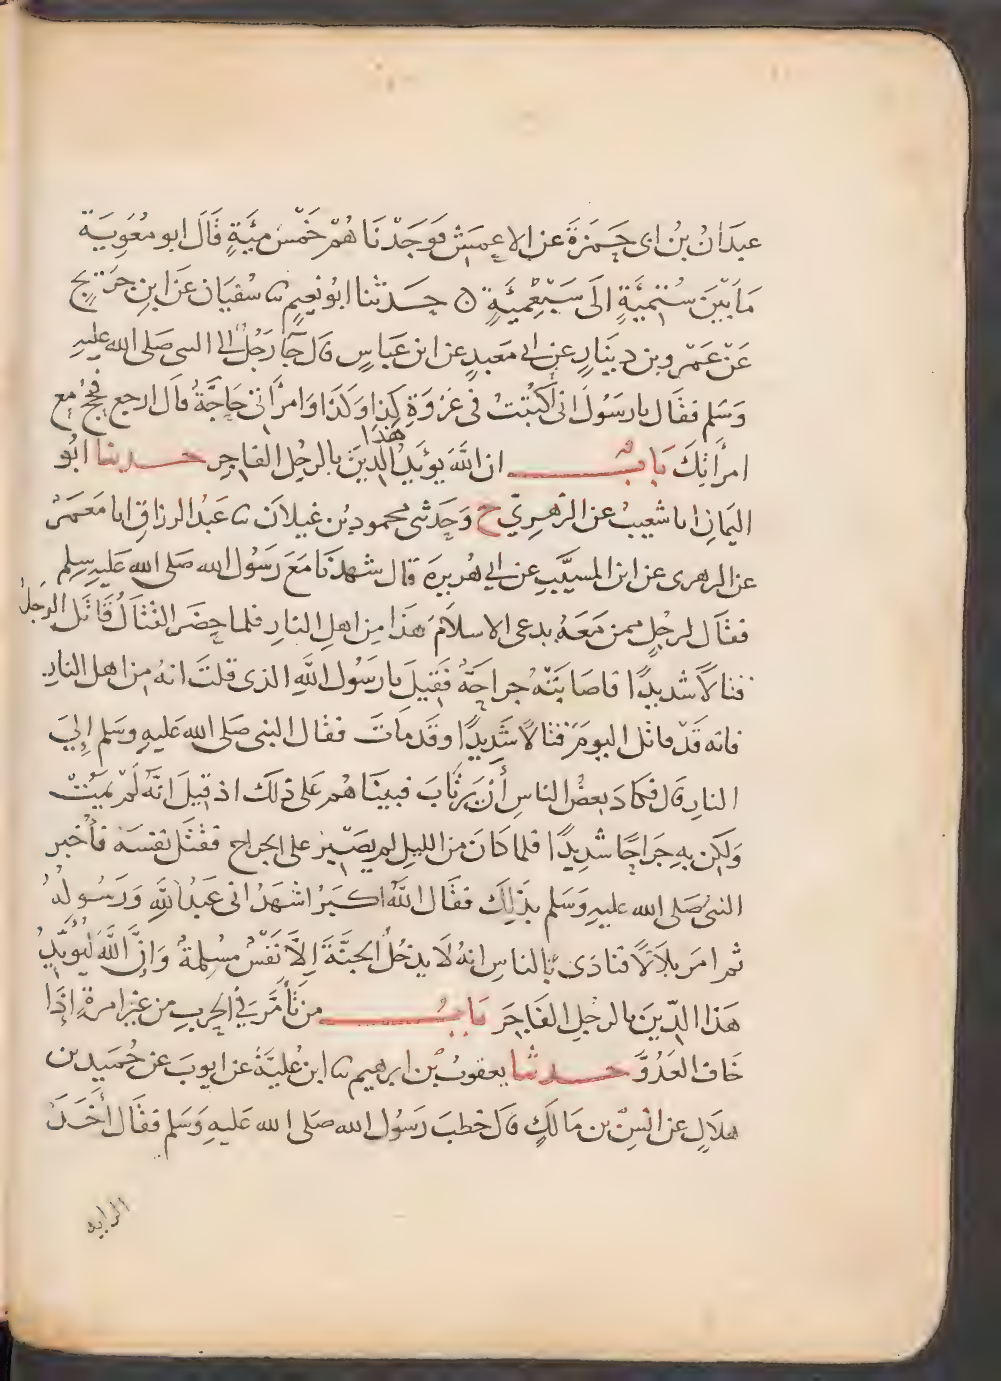 عبدَانُ بنُ ابى حَمزةَ عن الاعمِش فَوَجَدْنَا هُمْ خَمْسَ مِيَةٍ قَالَ ابو مُعَوِيَة
مَا بَيْنَ سُتّمِئَةٍ الَى سَبْعِمِئَةٍ ٥ حَدثنا ابُو نعِيمٍ نا سُفيَان عَن ابنِ جُرَيجٍ
عَنْ عَمْرو بن دِينَارٍ عن ابى مَعبدٍ عن ابن عَباسٍ قال جَآ رَجُلٌ الى النبى صَلى الله عليهِ
وَسَلم فقَال يا رَسُولَ انى اُكْتُتِبْتُ فى غزوَةِ كَذا وَكَذا وَامرأتى حَاجَّةٌ قال ارجع فحُجَّ مع
امرأتِكَ بَابٌ ان اللهَ يُؤيّدُ هذا الدينَ بالرجُلِ الفاجِرِ حدثنا ابُو
اليَمانِ انا شعيبٌ عن الزهرِيّ ح وَحَدثنى محمودُ بن غيلان نا عَبدُ الرزاقِ انا مَعمَرٌ
عن الزهرى عن ابن المسيَّبِ عن ابى هُريرَة قال شهدنَا مَعَ رَسُول الله صَلى الله عَليهِ وسلم
فقال لرجُلٍ ممن مَعَهُ يدعى الاسلَامَ هَذا مِن اهلِ النارِ فلما حضَر القتَالُ قَاتَل الرجلُ
قتالاً شديدًا فاصَابَتْهُ جراحَةٌ فَقِيلَ يا رَسُول اللهِ الذى قلتَ انهُ من اهل النارِ
فانه قَدْ قاتل اليومَ قتالًا شَدِيدًا وقَد مَاتَ فقال النبى صَلى الله عَليهِ وسَلم إلَى
النارِ قال فكادَ بعضُ الناسِ أنْ يَرتَابَ فبينَا هُم عَلى ذلك اذ قيلَ انهُ لَمْ يمُتْ
وَلكن بهِ جَراحًا شَدِيدًا فلما كانَ من الليلِ لم يصْبِر على الجراح فقتَل نفسَهُ فأُخبر
النبىُ صَلى الله عليهِ وَسَلم بذلِكَ فقَال اللهُ اكبَرُ اشهَدُ انى عَبدُ اللهِ وَرَسُولُهُ
ثم امَر بلاَلًا فنادَى بالناسِ انهُ لَا يدخُلُ الجنَّةَ إلاَّ نَفْسٌ مُسْلِمَةٌ وَإنَّ اللهَ ليُؤيّدُ
هَذا الدّينَ بالرجلِ الفَاجِرِ بَابُ من تَأمَّرَ فى الحربِ من غيرِ امرةٍ إذَا
خَافَ العَدُوَّ حدثنا يعقوبُ بن ابرهيم نا ابنُ عُليَّةَ عن ايوبَ عن حُمَيدِ بن
هلَالٍ عن انسِ بن مَالكٍ قال خطبَ رَسُول الله صَلى الله عَليهِ وَسَلم فقَال أخَذَ
الراية